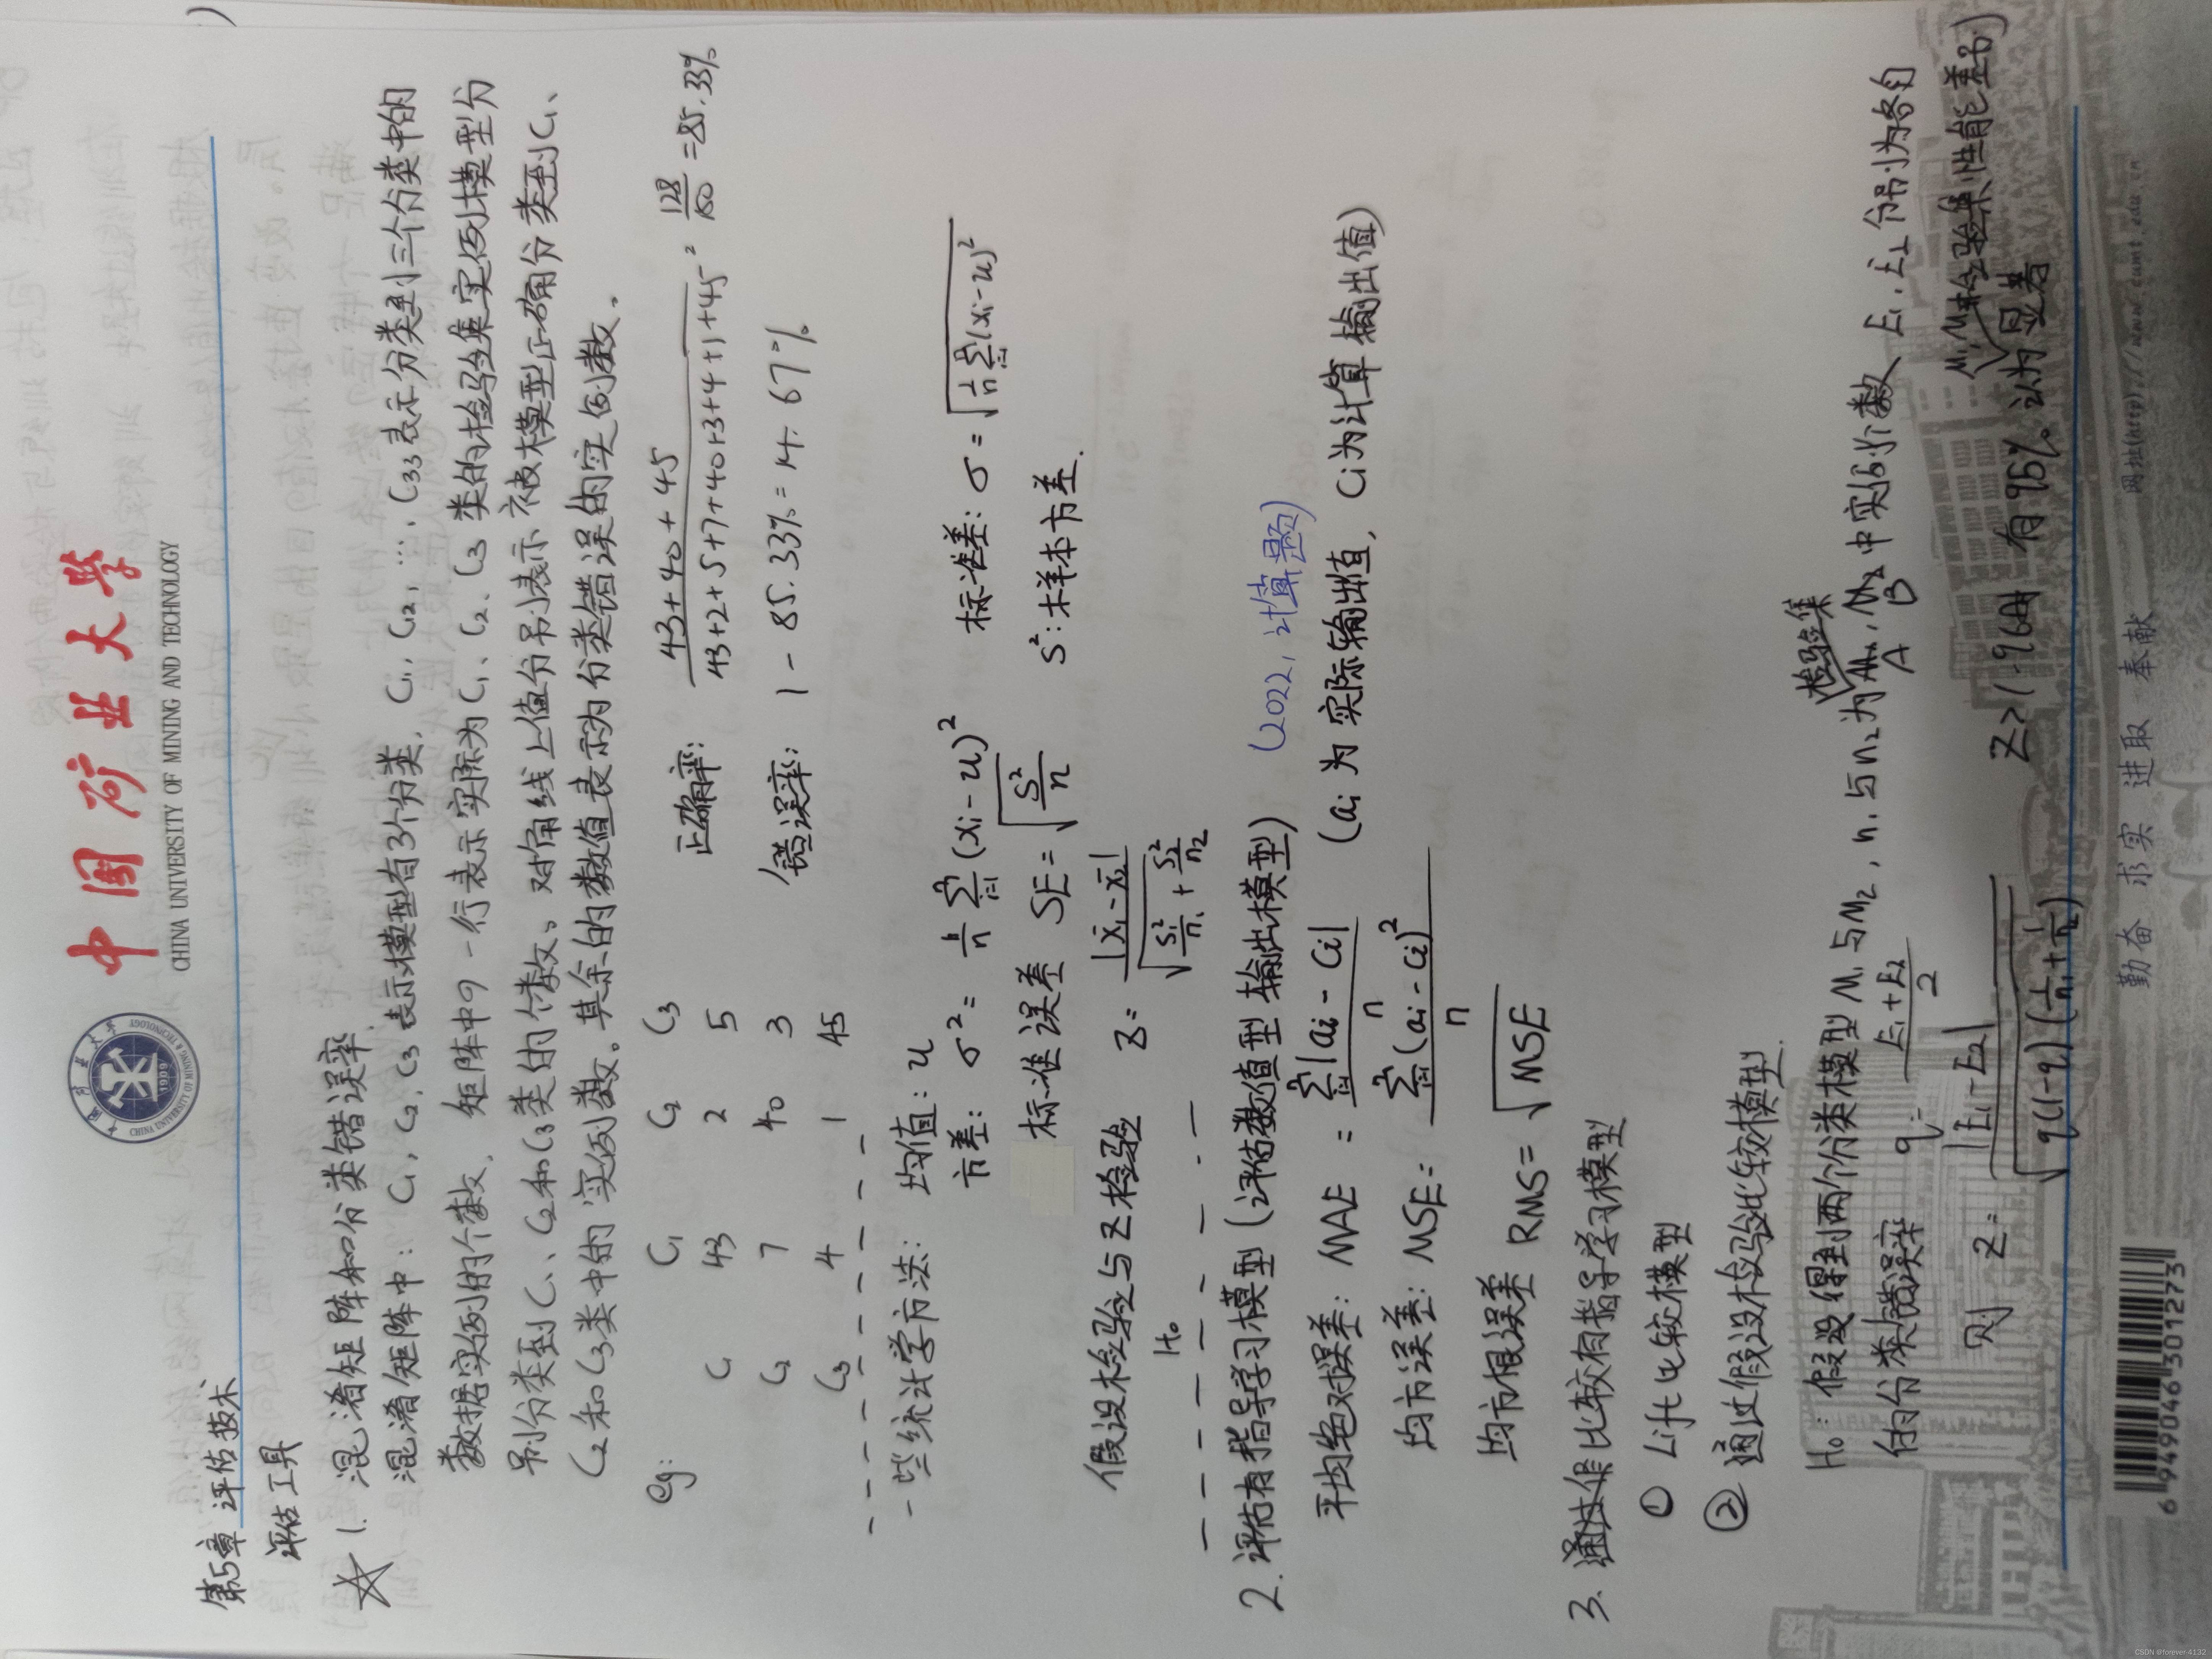 中国矿业大学
CHINA UNIVERSITY OF MINING AND TECHNOLOGY
第5章 评估技术
评估工具
☆ 1. 混淆矩阵和分类错误率.
混淆矩阵中: C₁, C₂, C₃ 表示模型有3个分类, C₁₁, C₁₂, ..., C₃₃ 表示分类到三个分类中的
数据实例的个数, 矩阵中的一行表示实际为C₁、C₂、C₃类的检验集实例被模型分
别分类到C₁、C₂和C₃类的个数。对角线上值分别表示被模型正确分类到C₁、
C₂和C₃类中的实例数。其余的数值表示为分类错误的实例数。
eg: C₁ C₂ C₃
C₁ 43 2 5 正确率: (43+40+45)/(43+2+5+7+40+3+4+1+45) = 128/150 = 85.33%
C₂ 7 40 3 错误率: 1 - 85.33% = 14.67%
C₃ 4 1 45
一些统计学方法: 均值: u
方差: σ² = 1/n Σⁿᵢ₌₁ (xᵢ-u)² 标准差: σ = √(1/n Σⁿᵢ₌₁(xᵢ-u)²)
标准误差 SE = √(S²/n) S²: 样本方差.
假设检验与Z检验 Z = |x̄₁-x̄₂| / √(S₁²/n₁ + S₂²/n₂)
H₀
2. 评估有指导学习模型 (评估数值型输出模型) (2022, 计算题)
平均绝对误差: MAE = Σⁿᵢ₌₁|aᵢ-cᵢ| / n (aᵢ为实际输出值, cᵢ为计算输出值)
均方误差: MSE = Σⁿᵢ₌₁(aᵢ-cᵢ)² / n
均方根误差 RMS = √MSE
3. 通过 比较有指导学习模型
① Lift比较模型
② 通过假设检验比较模型.
检验集
H₀: 假设得到两个分类模型M₁与M₂, n₁与n₂为 中实例个数, E₁, E₂分别为各自
A B
的分类错误率 q = (E₁+E₂)/2 M₁, M₂ 检验集性能差别)
则 Z = |E₁-E₂| / √(q(1-q)(1/n₁+1/n₂)) Z>1.96时有95%。认为显著
6 949046 301273
勤奋 求实 进取 奉献
网址(http)://www.cumt.edu.cn
CSDN @forever-4132